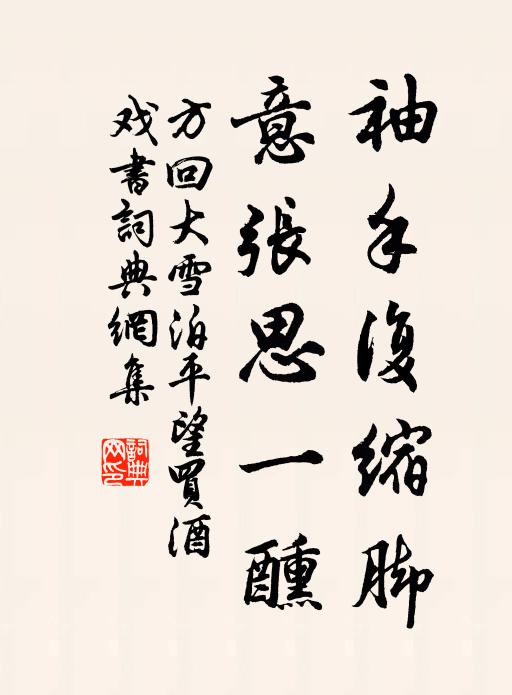 袖手復縮脚
意張思一醺
方回大雪泊平望買酒
戏書詞典網集
詞典網印